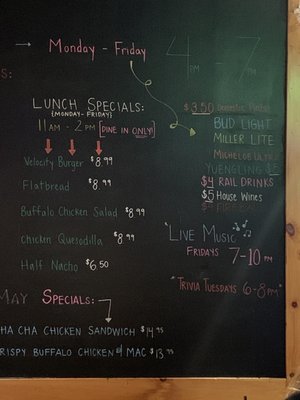 → Monday - Friday
4 PM - 7 PM
S:
LUNCH SPECIALS:
{MONDAY-FRIDAY}
11 AM - 2 PM [DINE IN ONLY!]
Velocity Burger $8.99
Flatbread $8.99
Buffalo Chicken Salad $8.99
Chicken Quesadilla $8.99
Half Nacho $6.50
$3.50 Domestic Pints
BUD LIGHT
MILLER LITE
MICHELOB ULTRA
YUENGLING $5
$4 RAIL DRINKS
$5 House Wines
"LIVE MUSIC"
FRIDAYS 7-10 PM
"TRIVIA TUESDAYS 6-8 PM"
MAY SPECIALS:
HA CHA CHICKEN SANDWICH $14.95
RISPY BUFFALO CHICKEN w/ MAC $13.95